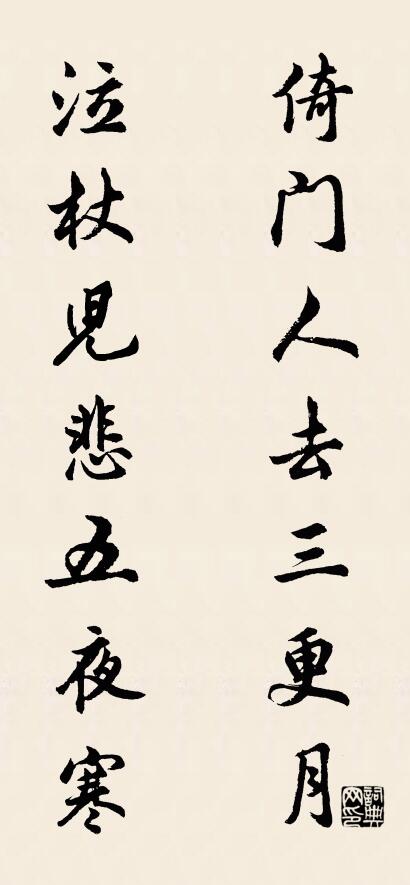 倚门人去三更月
泣杖児悲五夜寒
詞典网印